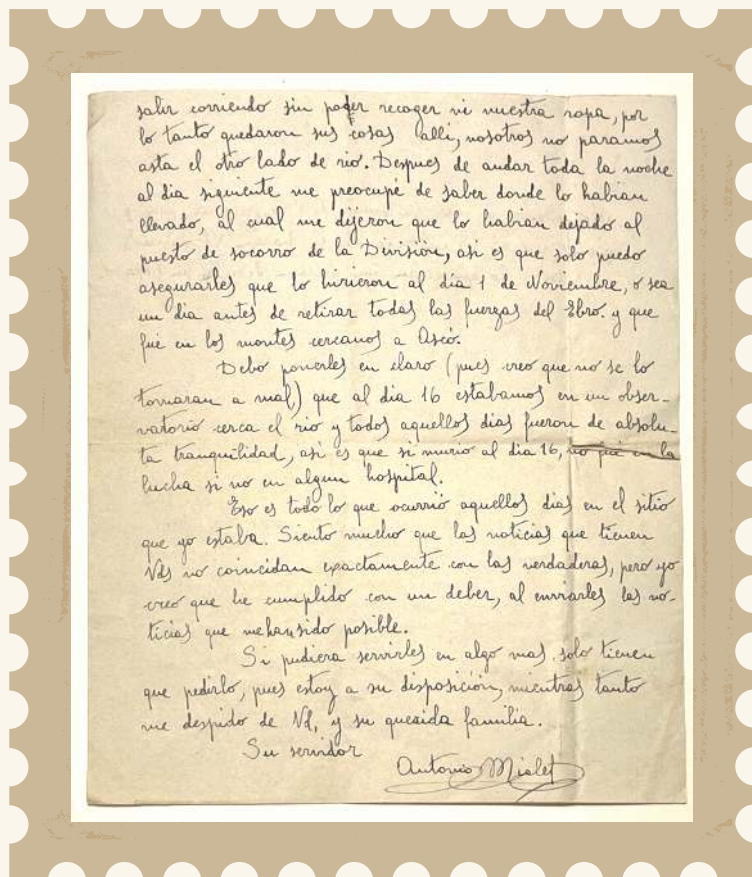 salir corriendo sin poder recoger ni nuestra ropa, por
lo tanto quedaron sus cosas alli, nosotros no paramos
asta el otro lado de rio. Despues de andar toda la noche
al dia siguiente me preocupé de saber donde lo habian
llevado, al cual me dijeron que lo habian dejado al
puesto de socorro de la División, asi es que solo puedo
asegurarles que lo hirieron al día 1 de Noviembre, o sea
un dia antes de retirar todas las fuerzas del Ebro. y que
fué en los montes cercanos a Ascó.
Debo ponerles en claro (pues creo que no se lo
tomaran a mal,) que al dia 16 estabamos en un obser-
vatorio cerca el rio y todos aquellos dias fueron de absolu-
ta tranquilidad, asi es que si murio al dia 16, no fué en la
lucha si no en algun hospital.
Eso es todo lo que ocurrió aquellos dias en el sitio
que yo estaba. Siento mucho que las noticias que tienen
Vds no coincidan exactamente con las verdaderas, pero yo
creo que he cumplido con un deber, al enviarles las no-
ticias que me han sido posible.
Si pudiera servirles en algo mas, solo tienen
que pedirlo, pues estoy a su disposición, mientras tanto
me despido de Vd, y su querida familia.
Su servidor
Antonio Miolet